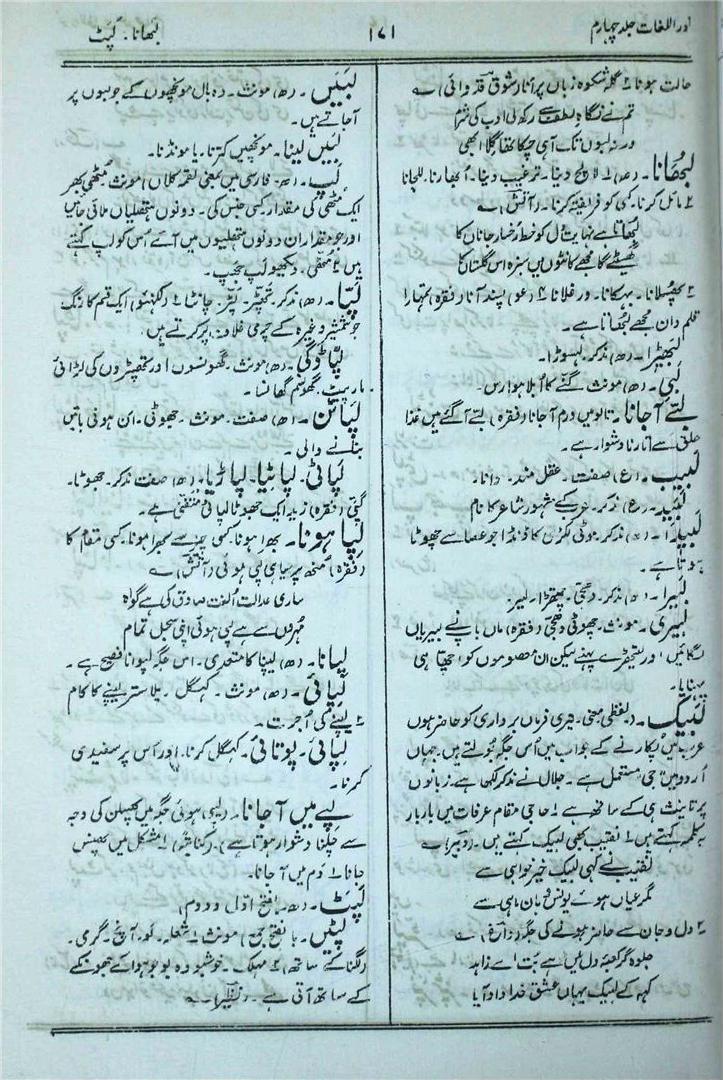 نور اللغات جلد چہارم
۱۷۱
لبھانا۔ لپٹ
حالت ہونا ۲ گلہ شکوہ زباں پر آنا (شوق قدوائی) ؎
تم نے نگاہ لطف سے رکھ لی ادب کی شرم
ورنہ لبوں تک آ ہی چکا تھا گلا ابھی
لبھانا۔ (ھ) ۱ لالچ دینا۔ ترغیب دینا۔ اُبھارنا۔ للچانا
۲ مائل کرنا۔ کسی کو فریفتہ کرنا۔ (آتش) ؎
لبھاتا ہے نہایت دل کو خط رخسار جاناں کا
گھسیٹے گا مجھے کانٹوں میں سبزہ اس گلستاں کا
۳ پھسلانا۔ بہکانا۔ ورغلانا ۴ (عو) پسند آنا (فقرہ) تمہارا
قلم دان مجھے لبھاتا ہے۔
لبھیڑا۔ (ھ) مذکر۔ لہسوڑا۔
لبی۔ (ھ) مونث گنّے کا اُبلا ہوا رس۔
لبتے آجانا۔ تالو میں ورم آجانا (فقرہ) لبتے آگئے ہیں غذا
حلق سے اُتارنا دشوار ہے۔
لبیب۔ (ع) صفت۔ عقل مند۔ دانا۔
لبید۔ (ع) مذکر۔ عرب کے مشہور شاعر کا نام
لبیدا۔ (ھ) مذکر۔ موٹی لکڑی کا ڈنڈا جو عصا سے چھوٹا
ہوتا ہے۔
لبیرا۔ (ھ) مذکر۔ دھجی۔ چیتھڑا۔ لیر
لبیری۔ مونث۔ چھوٹی دھجی (فقرہ) ماں باپ نے لبیریاں
لگائیں اور لیتھڑے پہنے لیکن ان معصوموں کو اچھا ہی
پہنایا۔
لبیک۔ (لفظی معنی۔ تیری فرماں برداری کو حاضر ہوں
عرب میں پکارنے کے جواب میں اُس جگہ بولتے ہیں۔ جہاں
اُردو میں جی مستعمل ہے۔ جلال نے مذکر لکھا ہے۔ زبانوں
پر تانیث ہی کے ساتھ ہے ۱ حاجی مقام عرفات میں بار بار
یہ کلمہ کہتے ہیں ۲ نقیب بھی لبیک کہتے ہیں۔ (دبیر) ؎
نقیب نے کہی لبیک خیر خواہی سے
مگر عیاں ہوئے یونس دہان ماہی سے
۳ دل و جان سے حاضر ہونے کی جگہ (داغ) ؎
جلوہ گر کعبۂ دل میں ہے بت اے زاہد
کہہ کے لبیک یہاں عشق خدا داد آیا
لبیں۔ (ھ) مونث۔ وہ بال مونچھوں کے جو لبوں پر
آجاتے ہیں۔
لبیں لینا۔ مونچھیں کترنا۔ یا مونڈنا۔
لپ۔ (ھ۔ فارسی میں بمعنی لقمہ کلاں) مونث مُٹھی بھر
ایک مُٹھی کی مقدار کسی جنس کی۔ دونوں ہتھیلیاں ملائی جائیں
اور جو مقدار ان دونوں ہتھیلیوں میں آئے اُس کو لپ کہتے
ہیں ۲ مُٹھی۔ دیکھو لپ جھپ۔
لپّا۔ (ھ) مذکر۔ تھپڑ۔ لپڑ۔ چانٹا ۲ (لکھنؤ) ایک قسم کا رنگ
جو شمشیر وغیرہ کے چرمی غلاف پر کرتے ہیں۔
لپّا ڈگی۔ (ھ) مونث۔ گھونسوں اور تھپڑوں کی لڑائی
مار پیٹ۔ گھوسم گھانسا۔
لپاٹن۔ (ھ) صفت۔ مونث۔ جھوٹی۔ ان ہوئی باتیں
بنانے والی۔
لپاٹی۔ لپاٹیا۔ لپاڑیا۔ (ھ) صفت مذکر۔ جھوٹا۔
گپّی (فقرہ) زید ایک جھوٹا لپاٹی متفنّی ہے۔
لپا ہونا۔ بھرا ہونا۔ کسی چیز سے بھرا ہونا۔ کسی مقام کا
(فقرہ) مُنھ پر سیاہی لپی ہوئی (آتش) ؎
ساری عدالت الفت صادق کی ہے گواہ
مہروں سے ہے لپی ہوئی اپنی سجل تمام
لپانا۔ (ھ) لیپنا کا متعدی۔ اس جگہ لپوانا فصیح ہے۔
لپائی۔ (ھ) مونث۔ کہگل۔ پلاستر لیپنے کا کام
۲ لیپنے کی اُجرت۔
لپائی۔ پوتائی۔ کہگل کرنا۔ اور اُس پر سفیدی
کرنا۔
لپے میں آجانا۔ (لپی ہوئی جگہ میں پھسلن کی وجہ
سے چلنا دشوار ہوتا ہے)۔ (کنایۃً) ۱ مشکل میں پھنس
جانا ۲ دم میں آجانا۔
لپٹ۔ (ھ۔ بفتح اوّل و دوم)
لپٹیں۔ بالفتح جمع) مونث ۱ شعلہ۔ لو۔ آنچ۔ گرمی۔
(لگنا کے ساتھ) ۲ مہک۔ خوشبو وہ بو جو ہوا کے جھونکے
کے ساتھ آتی ہے۔ ؎